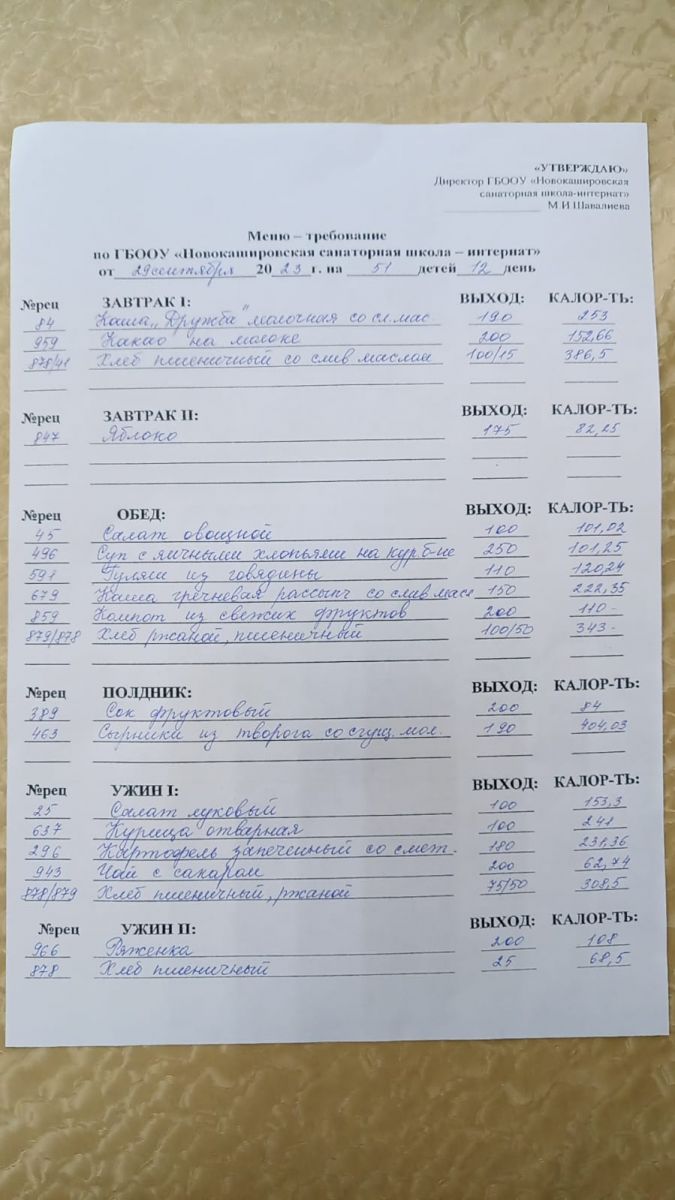 «УТВЕРЖДАЮ»
Директор ГБООУ «Новокашировская
санаторная школа-интернат»
____________ М.И Шавалиева
Меню – требование
по ГБООУ «Новокашировская санаторная школа – интернат»
от 29 сентября 2023 г. на 51 детей 12 день
№рец ЗАВТРАК I: ВЫХОД: КАЛОР-ТЬ:
84 Каша „Дружба" молочная со сл.мас. 190 253
959 Какао на молоке 200 152,66
878/41 Хлеб пшеничный со слив маслом 100/15 386,5
№рец ЗАВТРАК II: ВЫХОД: КАЛОР-ТЬ:
847 Яблоко 175 82,25
№рец ОБЕД: ВЫХОД: КАЛОР-ТЬ:
45 Салат овощной 100 101,02
496 Суп с яичными хлопьями на кур.б-не 250 101,25
591 Гуляш из говядины 110 120,24
679 Каша гречневая рассыпч со слив масл 150 222,35
859 Компот из свежих фруктов 200 110 -
879/878 Хлеб ржаной, пшеничный 100/50 343 -
№рец ПОЛДНИК: ВЫХОД: КАЛОР-ТЬ:
389 Сок фруктовый 200 84
463 Сырники из творога со сгущ. мол. 190 404,03
№рец УЖИН I: ВЫХОД: КАЛОР-ТЬ:
25 Салат луковый 100 153,3
637 Курица отварная 100 241
296 Картофель запеченный со смет. 180 231,36
943 Чай с сахаром 200 62,74
878/879 Хлеб пшеничный, ржаной 75/50 308,5
№рец УЖИН II: ВЫХОД: КАЛОР-ТЬ:
966 Ряженка 200 108
878 Хлеб пшеничный 25 68,5